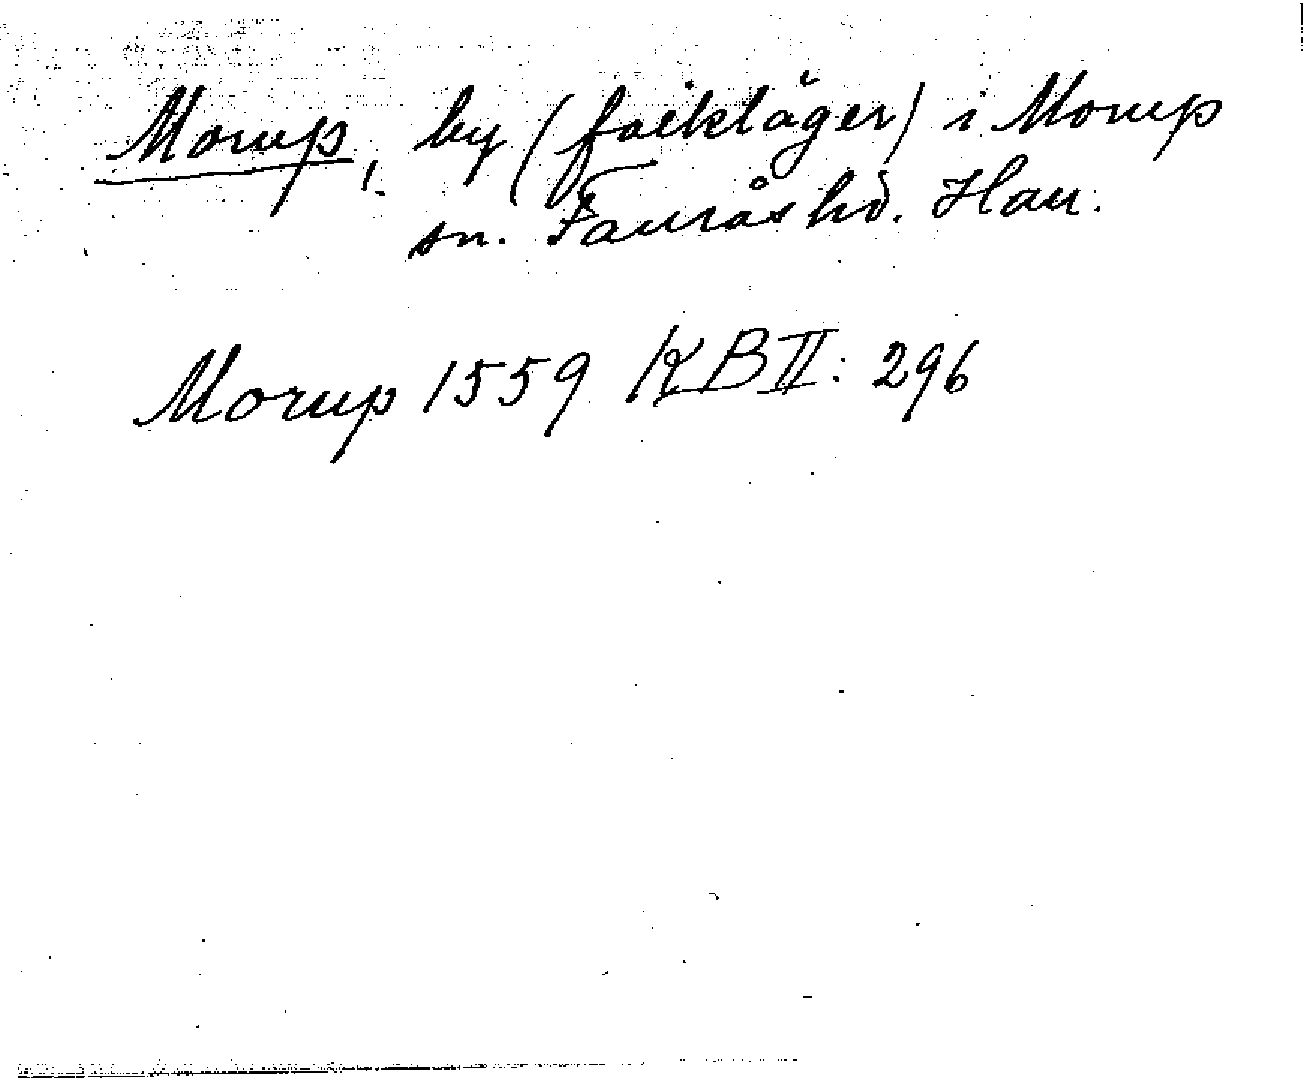 Morup, by (faikläger) i Morup
sn. Faurås hd. Hall.
Morup 1559 KB II: 296